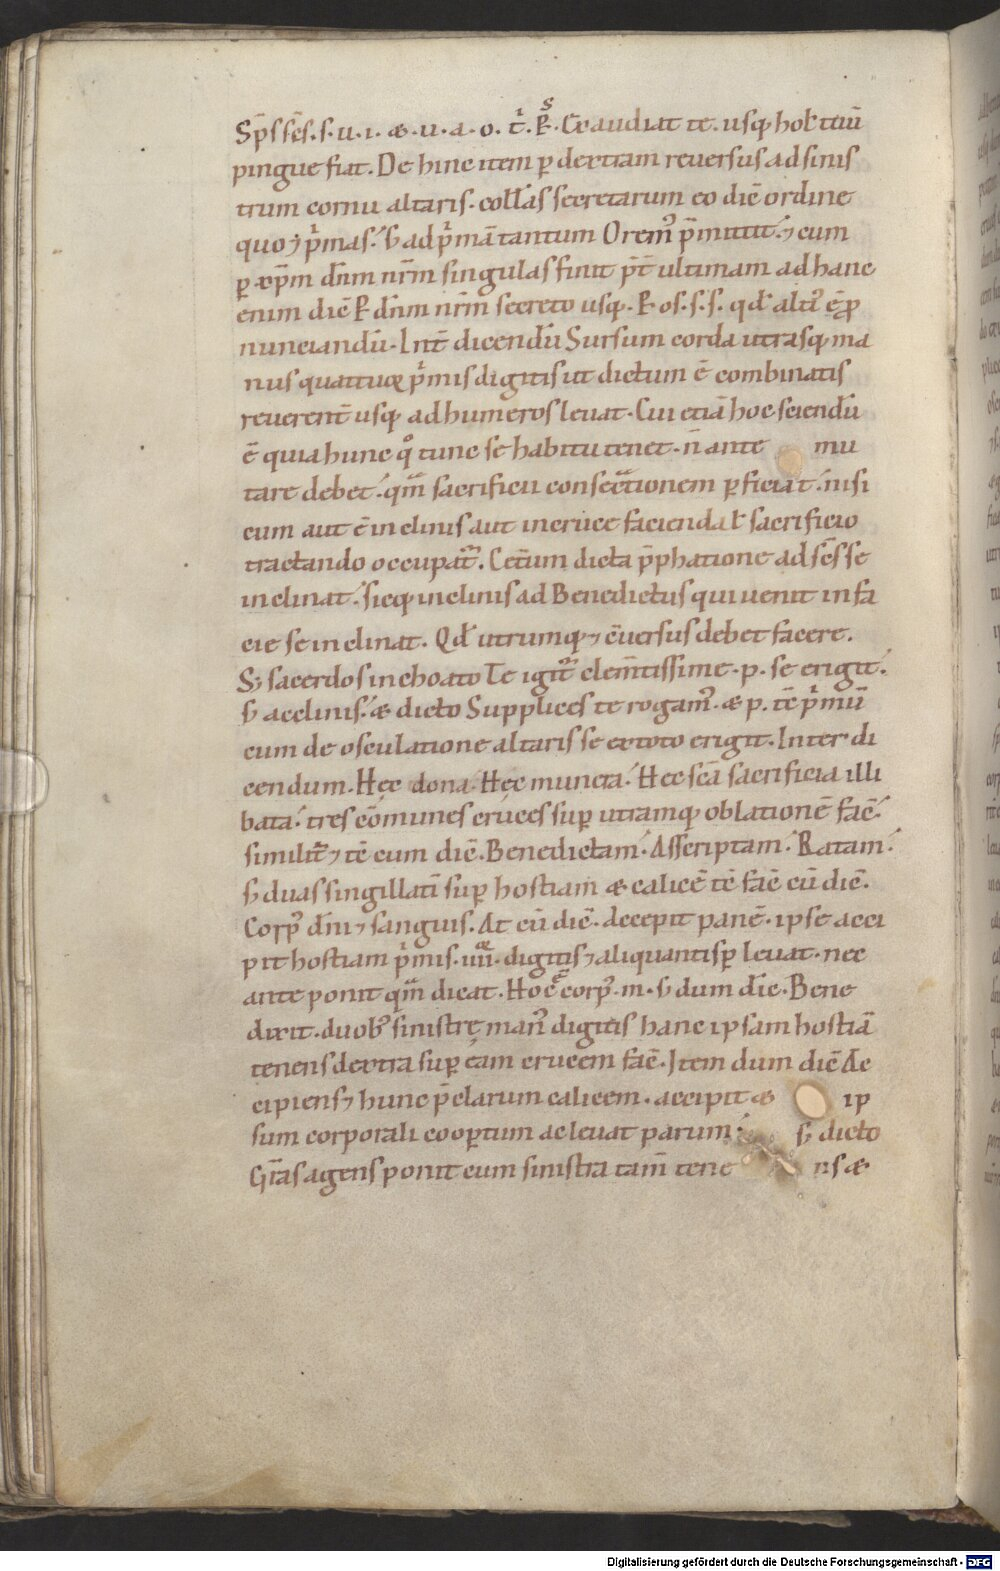 Sp̄s sc̄s. s. u. i. æ. u. a. o. t̄. R̄. Exaudiat te. usq; hol' tuū
pingue fiat. De hinc item p̱ dextram reuersus ad sinis
trum cornu altaris. coll'as secretarum eo diē ordine
quo ⁊ p'mas. ß ad p'mā tantum Orem᷒ p̄mittit. ⁊ cum
p̱ xp̄m dn̄m nr̄m singulas finit p̄t ultimam ad hanc
enim diē P̱ dn̄m nr̄m secreto usq;. P̱ os. s. s. qđ alt' ē ꝓ
nunciandū. Int̄ dicendū Sursum corda utrasq; ma
nus quattuor p'mis digitis ut dictum ē combinatis
reuerent̄ usq; ad humeros leuat. Cui etiā hoc sciendū
ē quia hunc q° tunc se habitu tenet. n̄ ante mu
tare debet. qm̄ sacrificii consec̄tionem p̱ficiat. nisi
cum aut ē inclinis aut in cruce facienda l' sacrificio
tractando occupat᷒. Cet̄um dicta p̄phatione ad sc̄s se
inclinat. sicq; inclinis ad Benedictus qui uenit in fa
cie se inclinat. Qđ utrumq; ⁊ c̄uersus debet facere.
S; sacerdos inchoato Te igit᷒ clem̄tissime. p. se erigit.
ß acclinis. æ dicto Supplices te rogam᷒. æ p. tē p'mū
cum de osculatione altaris se ex toto erigit. Inter di
cendum. Hęc dona. Hęc munera. Hęc sc̄a sacrificia illi
bata. tres cōmunes cruces sup̱ utramq; oblationē faē.
similit᷒ ⁊ tē cum diē. Benedictam. Asscriptam. Ratam.
ß duas singillatī sup̱ hostiam æ calicē tē faē cū diē.
Corp᷒ dn̄i ⁊ sanguis. At cū diē. Accepit panē. ipse acci
pit hostiam p'mis. iiii. digitis ⁊ aliquantisp̱ leuat. nec
ante ponit qm̄ dicat. Hoc ē corp᷒. m. ß dum diē. Bene
dixit. duob᷒ sinistrę man᷒ digitis hanc ipsam hostiā
tenens dextra sup̱ eam crucem faē. Item dum diē Ac
cipiens ⁊ hunc p̄clarum calicem. accipit æ ip
sum corporali coop̱tum ac leuat parum. ß dicto
Gr̄as agens ponit eum sinistra tam̄ tene ns æ
Digitalisierung gefördert durch die Deutsche Forschungsgemeinschaft - DFG